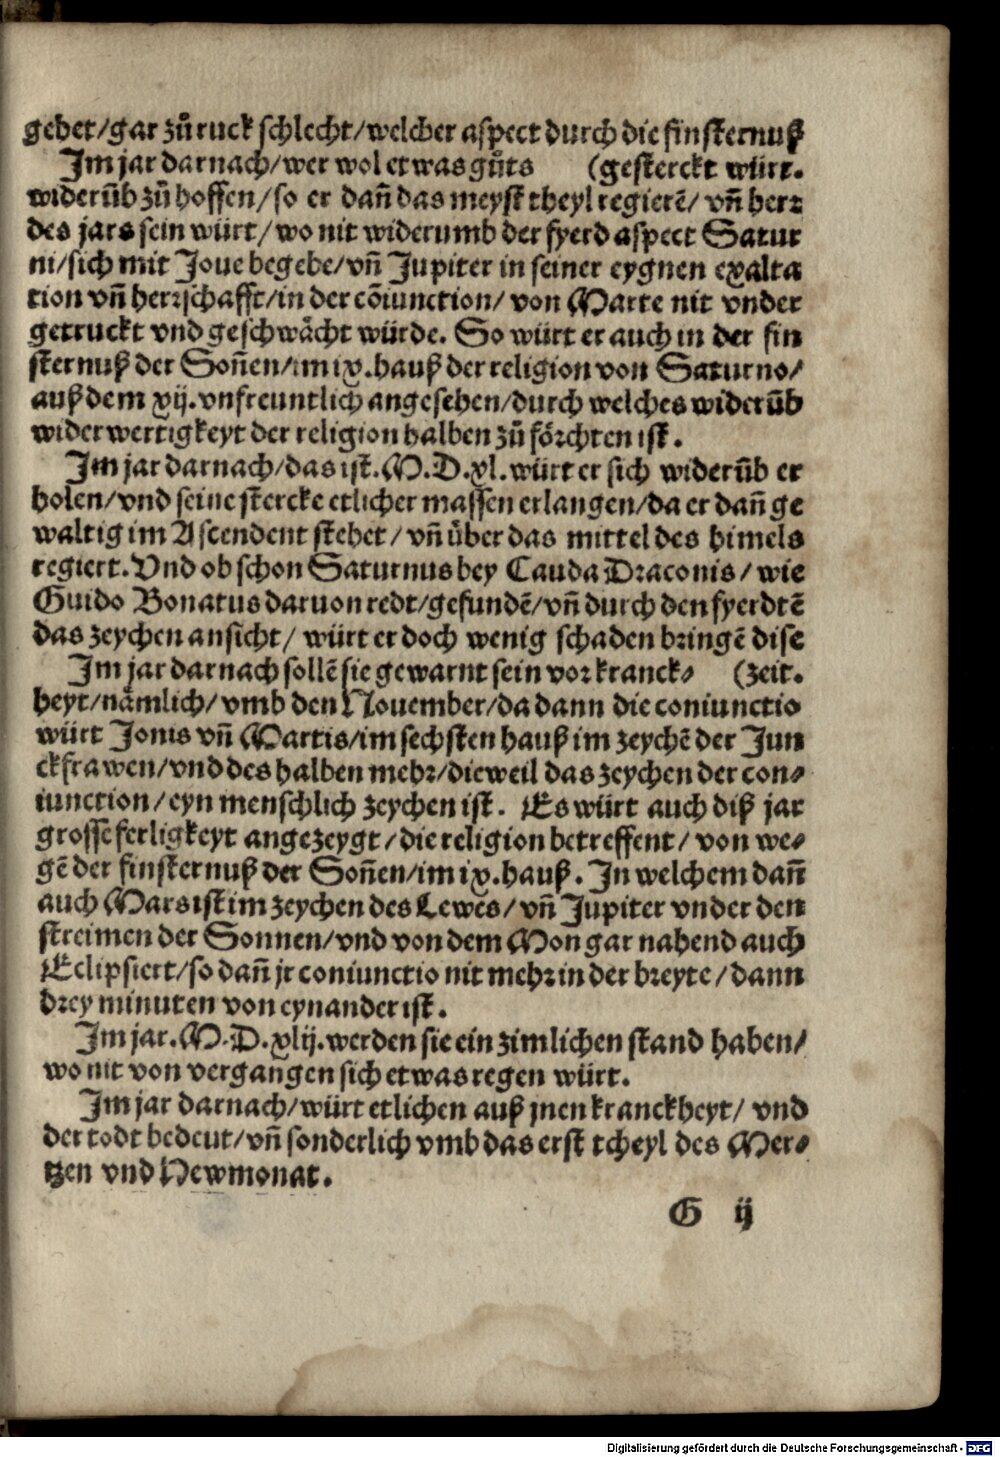 gehet/gar zů ruck schlecht/welcher aspect durch die finsternuß
Im jar darnach/wer wol etwas gůts (gesterckt würt.
widerūb zů hoffen/so er dañ das meyst theyl regierē/vñ herr
des jars sein würt/wo nit widerumb der fyerd aspect Satur
ni/sich mit Joue begebe/vñ Jupiter in seiner eygnen exalta
tion vñ herrschafft/in der cōiunction/von Marte nit vnder
getruckt vnd geschwächt würde. So würt er auch in der fin
sternuß der Soñen/im ix.hauß der religion von Saturno/
auß dem xij.vnfreuntlich angesehen/durch welches widerūb
widerwertigkeyt der religion halben zů förchten ist.
Im jar darnach/das ist.M.D.xl.würt er sich widerūb er
holen/vnd seine stercke etlicher massen erlangen/da er dañ ge
waltig im Ascendent stehet/vñ über das mittel des himels
regiert.Vnd ob schon Saturnus bey Cauda Draconis/wie
Guido Bonatus daruon redt/gefundē/vñ durch den fyerdtē
das zeychen ansicht/würt er doch wenig schaden bringē dise
Im jar darnach sollē sie gewarnt sein vor kranck⸗ (zeit.
heyt/nämlich/vmb den Nouember/da dann die coniunctio
würt Jouis vñ Martis/im sechsten hauß im zeychē der Jun
ckfrawen/vnd des halben mehr/dieweil das zeychen der con⸗
iunction/eyn menschlich zeychen ist. Es würt auch diß jar
grosse ferligkeyt angezeygt/die religion betreffent/von we⸗
gē der finsternuß der Soñen/im ix.hauß. In welchem dañ
auch Mars ist im zeychen des Lewes/vñ Jupiter vnder den
streimen der Sonnen/vnd von dem Mon gar nahend auch
Eclipsiert/so dañ jr coniunctio nit mehr in der breyte/dann
drey minuten von eynander ist.
Im jar.M.D.xlij.werden sie ein zimlichen stand haben/
wo nit von vergangen sich etwas regen würt.
Im jar darnach/würt etlichen auß jnen kranckheyt/vnd
der todt bedeut/vñ sonderlich vmb das erst tcheyl des Mer⸗
tzen vnd Hewmonat.
G ij
Digitalisierung gefördert durch die Deutsche Forschungsgemeinschaft - DFG